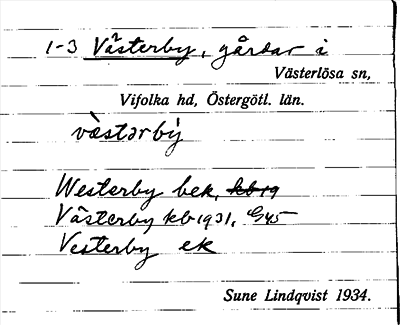 1-3 Västerby, gårdar i
Västerlösa sn,
Vifolka hd, Östergötl. län.
vàstərbẏ
Westerby bek, kb 19
Västerby kb 1931, G45
Vesterby ek
Sune Lindqvist 1934.